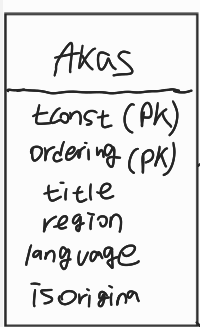 Akas
tconst (PK)
ordering (PK)
title
region
language
isorigina